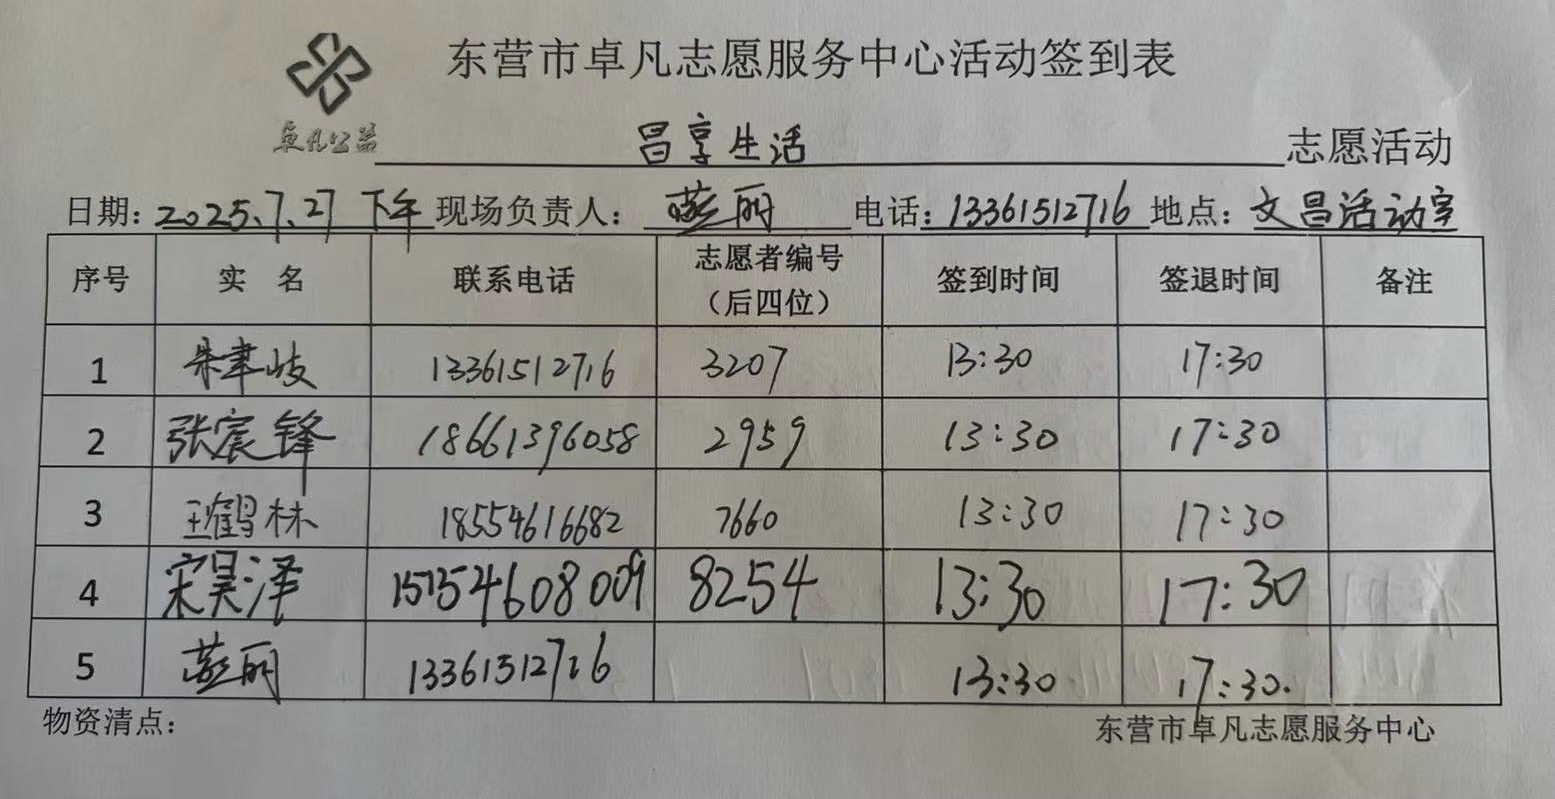 东营市卓凡志愿服务中心活动签到表
卓凡公益
昌享生活 志愿活动
日期：2025.7.27 下午 现场负责人： 丽 电话：13361512716 地点：文昌活动室
序号 实 名 联系电话 志愿者编号（后四位） 签到时间 签退时间 备注
1 朱聿岐 13361512716 3207 13:30 17:30
2 张宸锋 18661396058 2959 13:30 17:30
3 王鹤林 18554616682 7660 13:30 17:30
4 宋昊泽 15154608009 8254 13:30 17:30
5 丽 13361512716 13:30 17:30.
物资清点：
东营市卓凡志愿服务中心